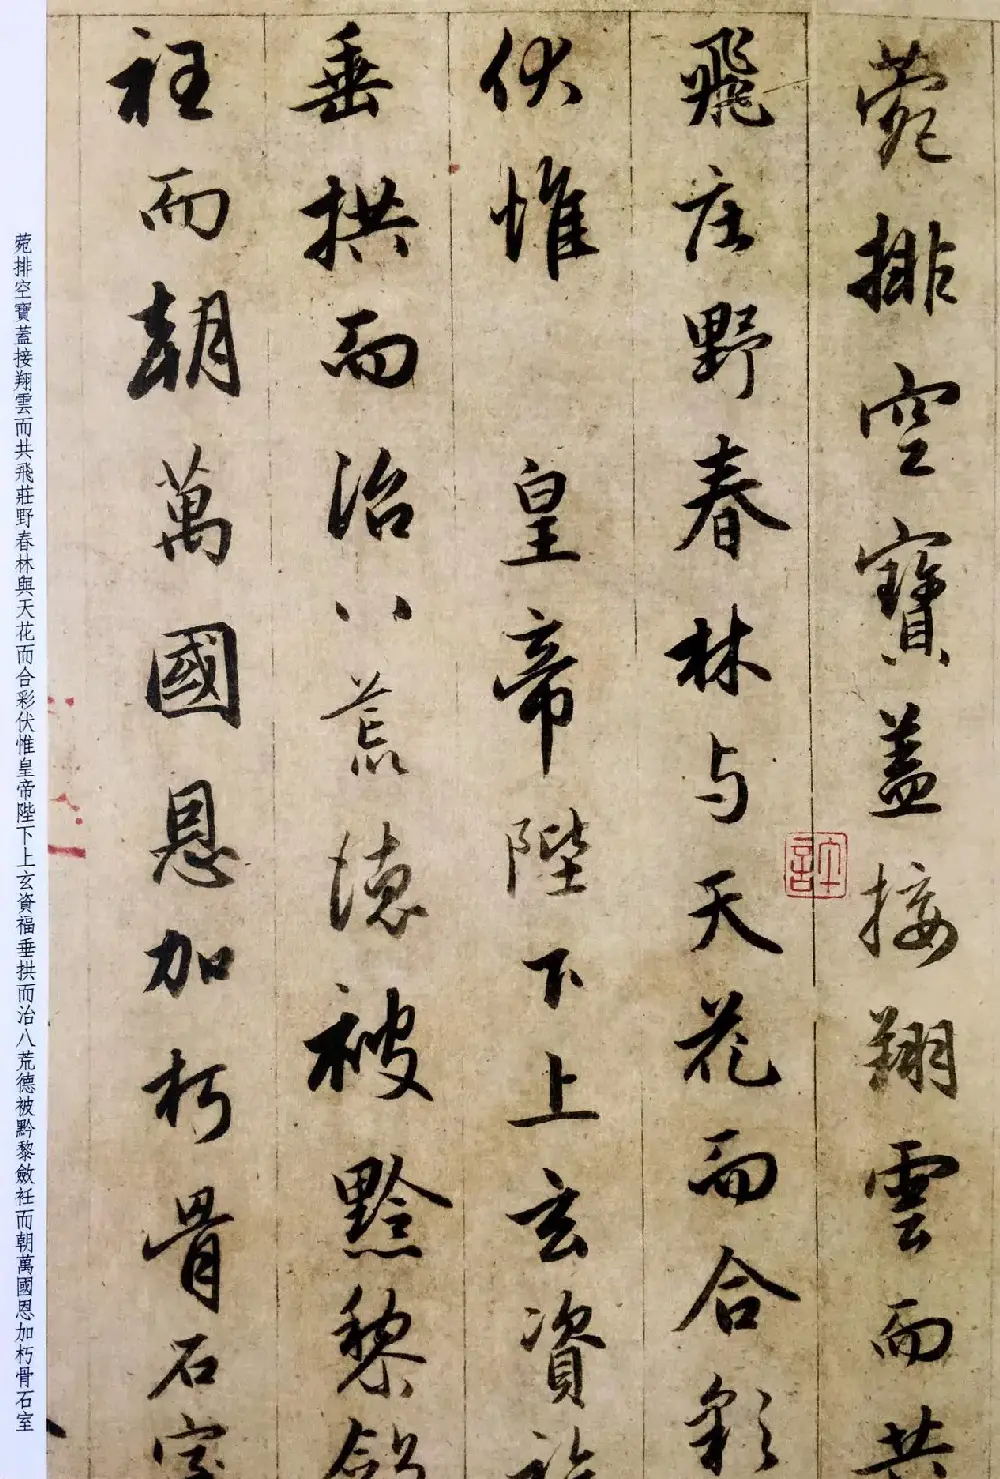 菀排空寶蓋接翔雲而共
飛庄野春林与天花而合彩
伏惟皇帝陛下上玄資福
垂拱而治八荒德被黔黎斂
衽而朝萬國恩加朽骨石室
菀排空寶蓋接翔雲而共飛莊野春林與天花而合彩伏惟皇帝陛下上玄資福垂拱而治八荒德被黔黎斂衽而朝萬國恩加朽骨石室